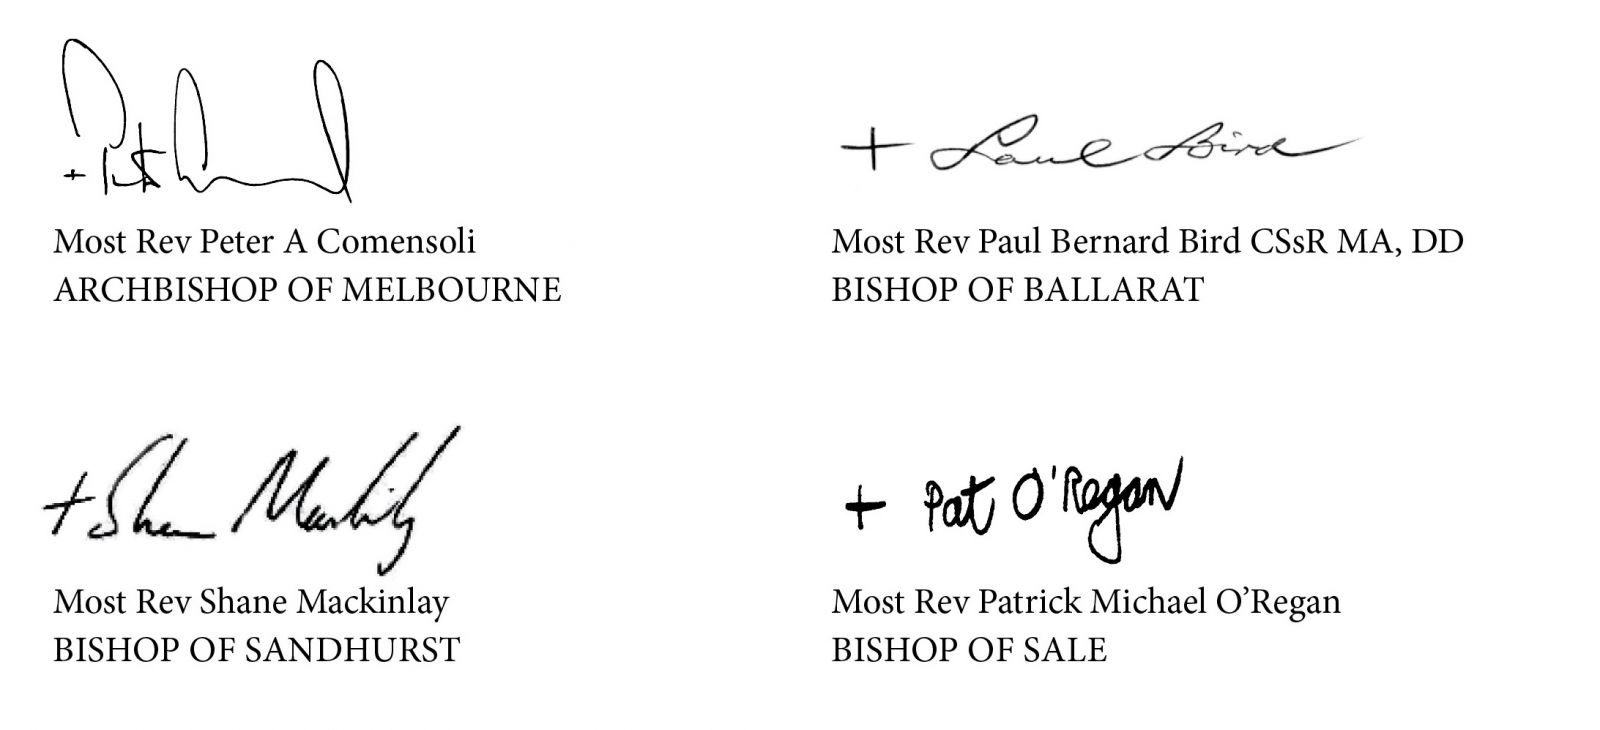 + Peter Comensoli
Most Rev Peter A Comensoli
ARCHBISHOP OF MELBOURNE
+ Paul Bird
Most Rev Paul Bernard Bird CSsR MA, DD
BISHOP OF BALLARAT
+ Shane Mackinlay
Most Rev Shane Mackinlay
BISHOP OF SANDHURST
+ Pat O'Regan
Most Rev Patrick Michael O’Regan
BISHOP OF SALE